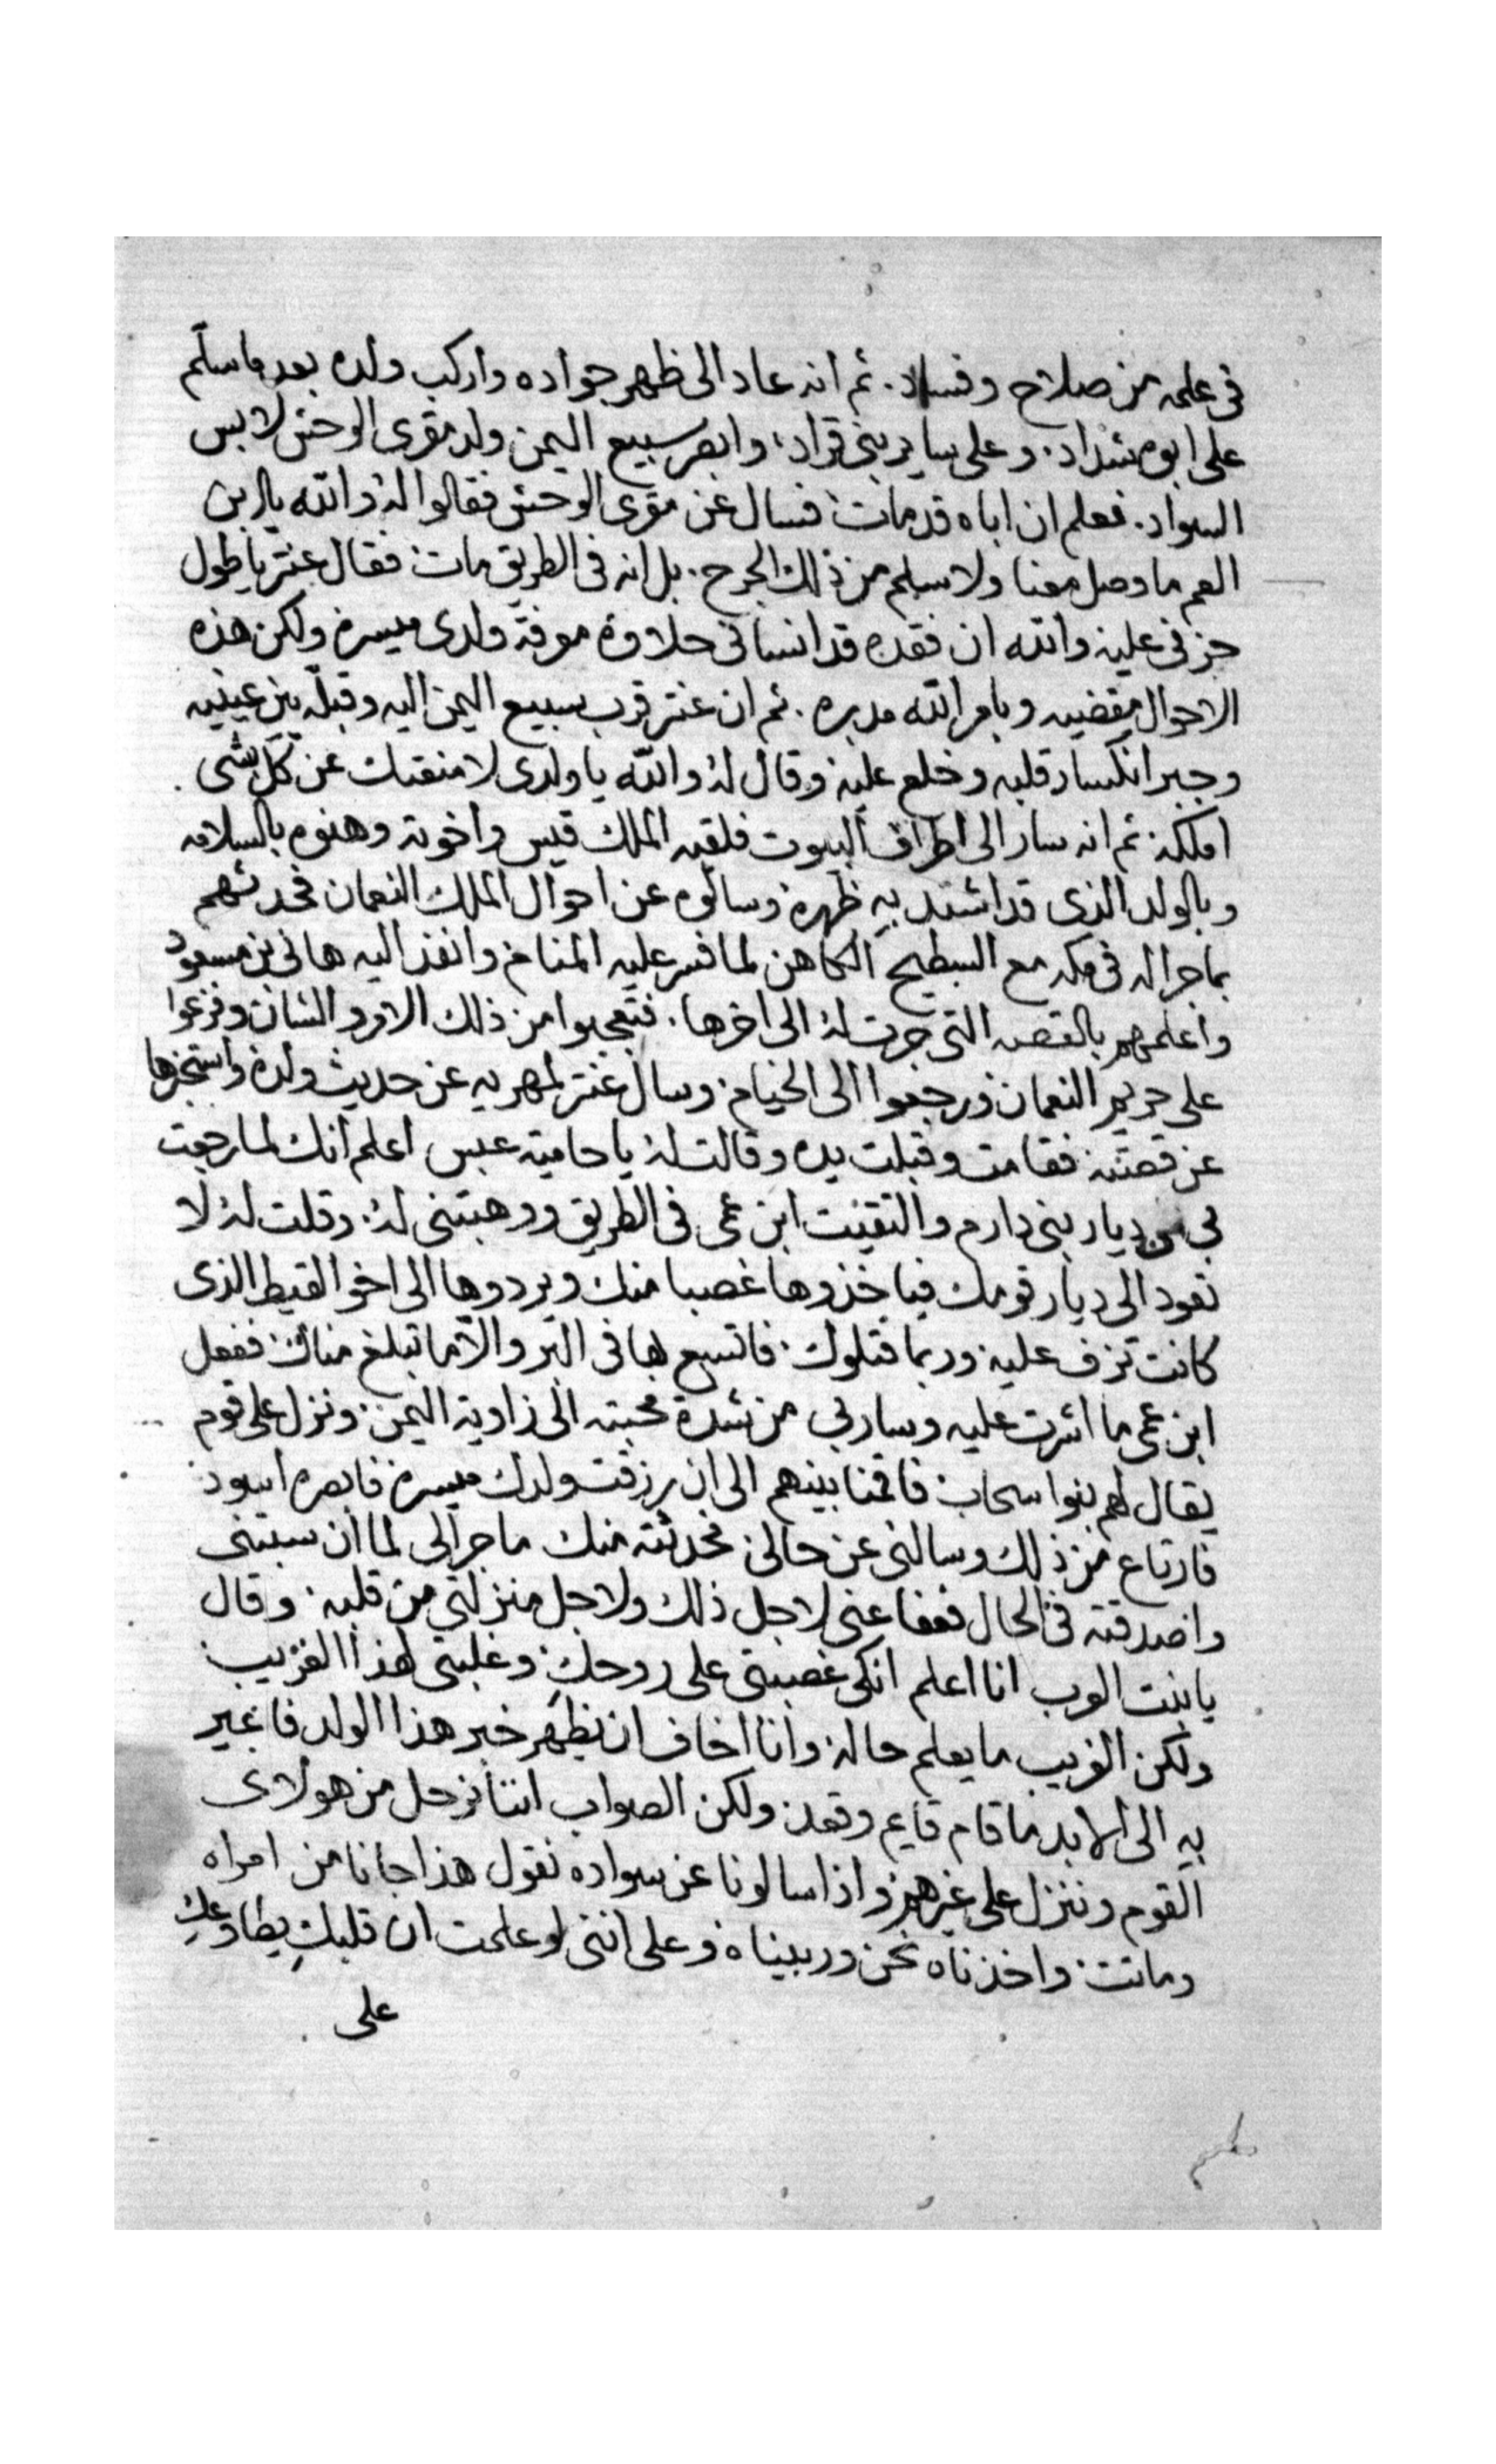 فى علمه من صلاح وفساد. ثم انه عاد الى ظهر جواده واركب ولده بعد ما سلّم
على ابوه شداد. وعلى ساير بنى قراد، وابصر سبيع اليمن ولد مقرى الوحش لابس
السواد. فعلم ان اباه قد مات فسال عن مقرى الوحش فقالوا له والله يا ابن
العم ما وصل معنا ولا سلم من ذلك الجرح. بل انه فى الطريق مات فقال عنتر يا طول
حزنى عليه والله ان فقده قد انسانى حلاوة معرفة ولدى ميسره ولكن هذه
الاحوال مقضيه وبامر الله مدبره. ثم ان عنتر قرب سبيع اليمن اليه وقبله بين عينيه
وجبر انكسار قلبه وخلع عليه وقال له والله يا ولدى لا منعتك عن كل شى.
املكه ثم انه سار الى اطراف البيوت فلقيه الملك قيس واخوته وهنوه بالسلامه
وبالولد الذى قد اشتد به ظهره وسالوه عن احوال الملك النعمان فحدثهم
بما جرا له فى مكه مع السطيح الكاهن لما فسر عليه المنام وانفذ اليه هانى بن مسعود
واعلمهم بالقصه التى جرت له الى اخرها. فتعجبوا من ذلك الامر والشان وفزعوا
على حريم النعمان ورجعوا الى الخيام. وسال عنتر لمهريه عن حديث ولده واستخبرها
عن قصته فقامت وقبلت يده وقالت له يا حامية عبس اعلم انك لما رجعت
بى من ديار بنى دارم والتقيت ابن عمى فى الطريق ووهبتنى له. وقلت له لا
تعود الى ديار قومك فياخذوها غصبا منك ويردوها الى اخو القيط الذى
كانت تزف عليه وربما قتلوك. فاتسع بها فى البر والا ما تبلغ مناك ففعل
ابن عمى ما اشرت عليه وسار بى من شدة محبته الى زاوية اليمن. ونزل على قوم
يقال لهم بنوا سحاب فاقمنا بينهم الى ان رزقت ولدك ميسره فابصره اسود
فارتاع من ذلك وسالنى عن حالى فحدثته منك ما جرا لى لما ان سبتنى
واصدقته فى الحال فعفا عنى لاجل ذلك ولاجل منزلتى من قلبه. وقال
يا بنت العرب انا اعلم انكى غصبتى على روحك. وغلبتى لهذا الغريب
ولكن الغريب ما يعلم حاله وانا اخاف ان يظهر خبر هذا الولد فاعير
به الى الابد ما قام قايم وقعد ولكن الصواب اننا نرحل من هولاى
القوم وننزل على غيرهم واذا سالونا عن سواده نقول هذا جانا من امراه
وماتت واخذناه نحن وربيناه وعلى اننى لو علمت ان قلبك يطاوعك
على